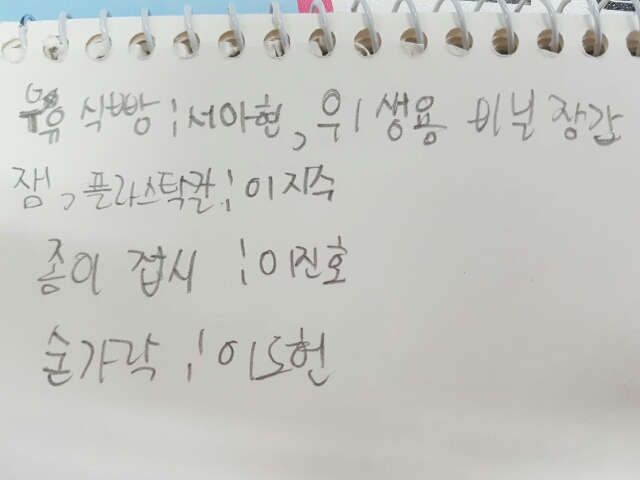 식빵 : 서아현, 위생용 비닐 장갑
잼, 플라스틱칼 : 이지수
종이 접시 : 이진호
숟가락 : 이도현